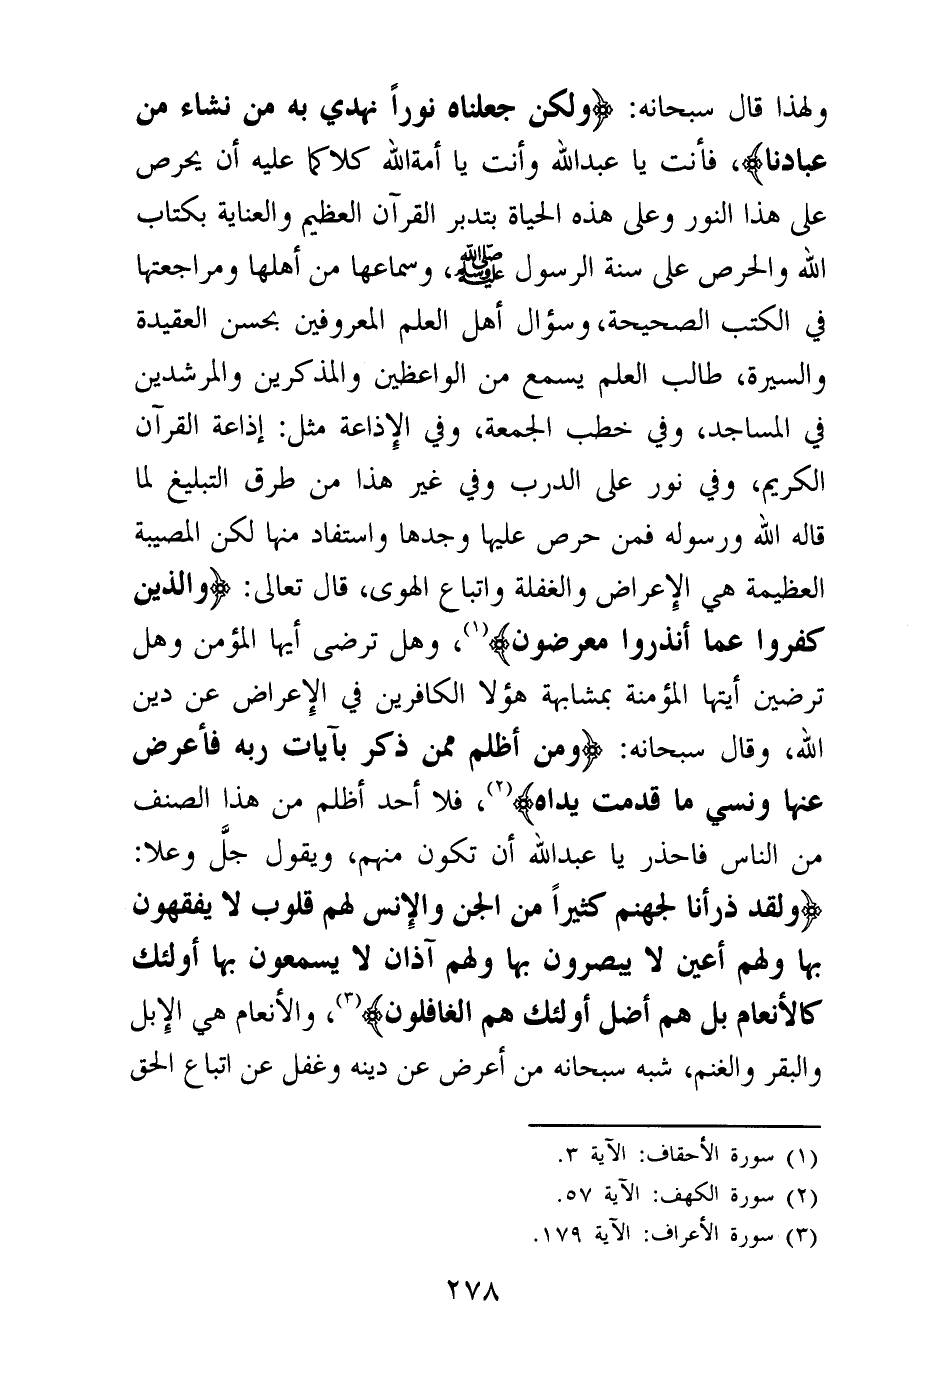 ولهذا قال سبحانه: ﴿ولكن جعلناه نوراً نهدي به من نشاء من
عبادنا﴾، فأنت يا عبدالله وأنت يا أمةالله كلاكما عليه أن يحرص
على هذا النور وعلى هذه الحياة بتدبر القرآن العظيم والعناية بكتاب
الله والحرص على سنة الرسول ﷺ، وسماعها من أهلها ومراجعتها
في الكتب الصحيحة، وسؤال أهل العلم المعروفين بحسن العقيدة
والسيرة، طالب العلم يسمع من الواعظين والمذكرين والمرشدين
في المساجد، وفي خطب الجمعة، وفي الإذاعة مثل: إذاعة القرآن
الكريم، وفي نور على الدرب وفي غير هذا من طرق التبليغ لما
قاله الله ورسوله فمن حرص عليها وجدها واستفاد منها لكن المصيبة
العظيمة هي الإعراض والغفلة واتباع الهوى، قال تعالى: ﴿والذين
كفروا عما أنذروا معرضون﴾(١)، وهل ترضى أيها المؤمن وهل
ترضين أيتها المؤمنة بمشابهة هؤلا الكافرين في الإعراض عن دين
الله، وقال سبحانه: ﴿ومن أظلم ممن ذكر بآيات ربه فأعرض
عنها ونسي ما قدمت يداه﴾(٢)، فلا أحد أظلم من هذا الصنف
من الناس فاحذر يا عبدالله أن تكون منهم، ويقول جلَّ وعلا:
﴿ولقد ذرأنا لجهنم كثيراً من الجن والإنس لهم قلوب لا يفقهون
بها ولهم أعين لا يبصرون بها ولهم آذان لا يسمعون بها أولئك
كالأنعام بل هم أضل أولئك هم الغافلون﴾(٣)، والأنعام هي الإبل
والبقر والغنم، شبه سبحانه من أعرض عن دينه وغفل عن اتباع الحق
(١) سورة الأحقاف: الآية ٣.
(٢) سورة الكهف: الآية ٥٧.
(٣) سورة الأعراف: الآية ١٧٩.
٢٧٨